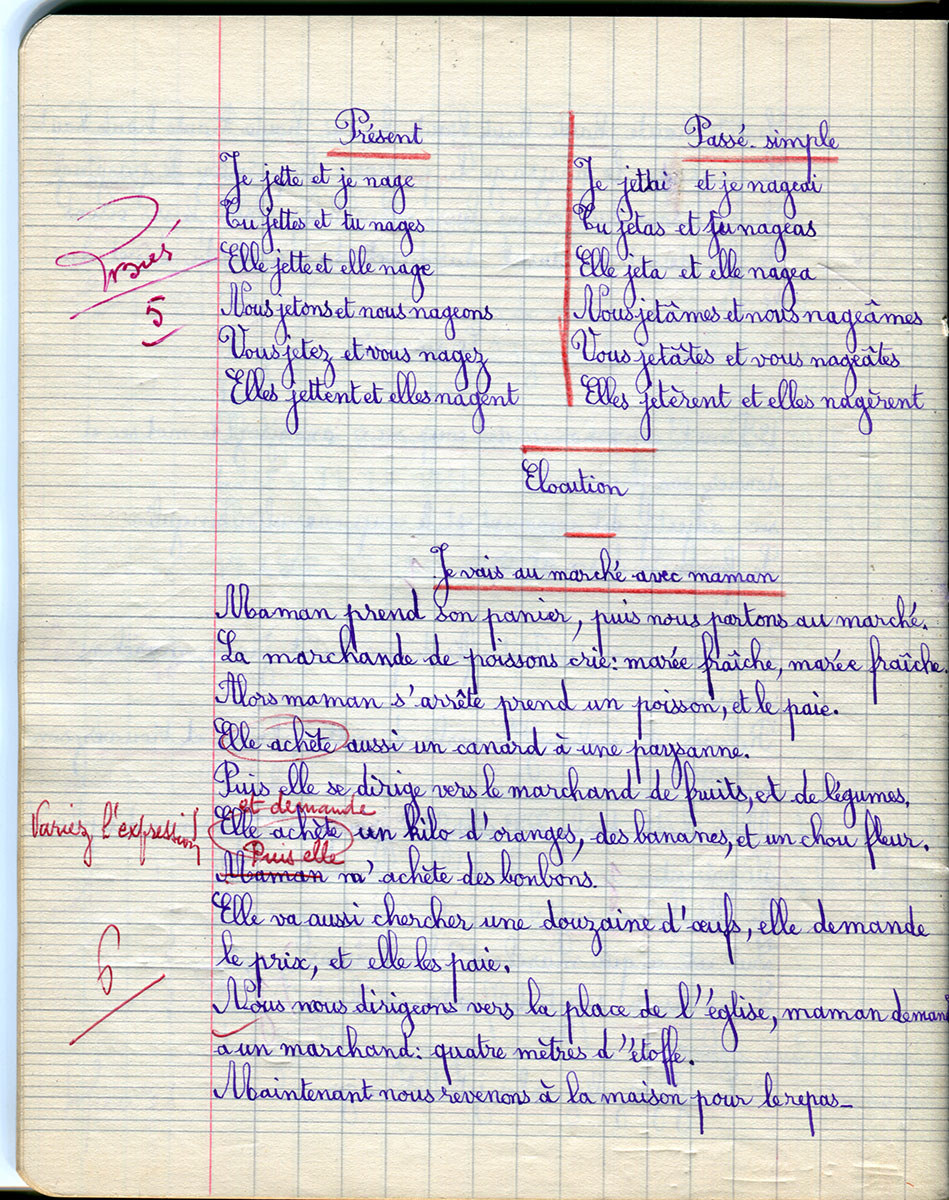 Présent
Je jette et je nage
Tu jettes et tu nages
Elle jette et elle nage
Nous jetons et nous nageons
Vous jetez et vous nagez
Elles jettent et elles nagent
Passé simple
Je jetai et je nageai
Tu jetas et tu nageas
Elle jeta et elle nagea
Nous jetâmes et nous nageâmes
Vous jetâtes et vous nageâtes
Elles jetèrent et elles nagèrent
5
Elocution
Je vais au marché avec maman
Maman prend son panier, puis nous partons au marché.
La marchande de poissons crie: marée fraîche, marée fraîche.
Alors maman s'arrête prend un poisson, et le paie.
Elle achète aussi un canard à une paysanne.
Puis elle se dirige vers le marchand de fruits, et de légumes.
et demande
Variez l'expression!
Elle achète un kilo d'oranges, des bananes, et un chou fleur.
Puis elle
Maman m'achète des bonbons.
Elle va aussi chercher une douzaine d'œufs, elle demande
le prix, et elle les paie.
6
Nous nous dirigeons vers la place de l'église, maman deman
à un marchand: quatre mètres d'étoffe.
Maintenant nous revenons à la maison pour le repas_